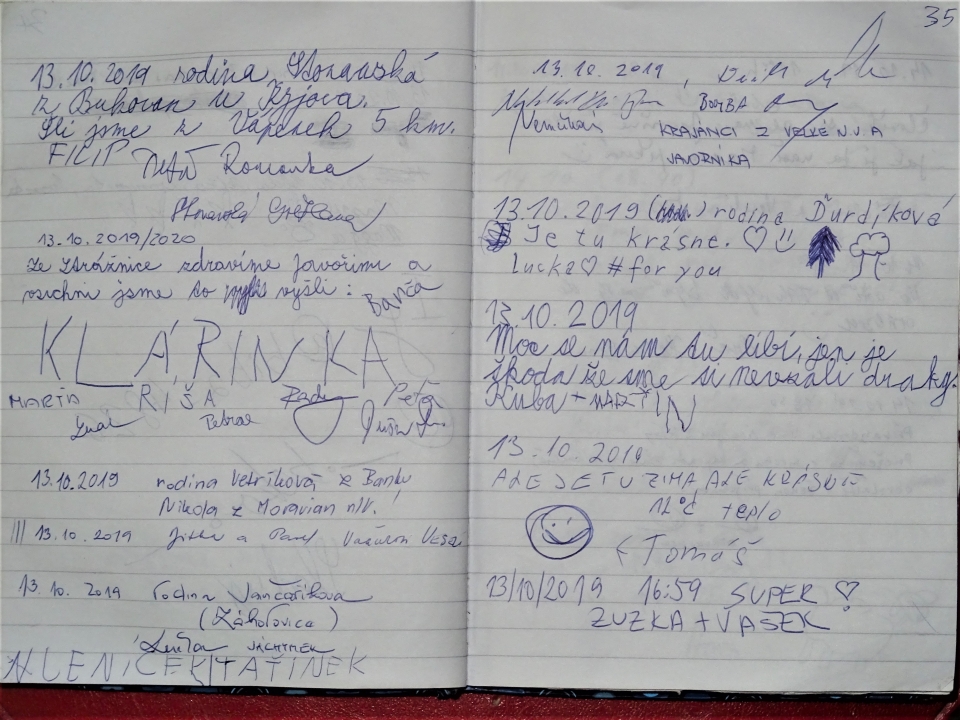 13.10.2019 rodina
z Bukovan u Kyjova.
Šli jsme z Vápenek 5 km.
FILIP Romanka
13.10.2019/2020
Ze Strážnice zdravíme Javořinu a
všichni jsme to vyšli:
Barča
KLÁRINKA
MARTA RIŠA Radu Peťa
Petras
13.10.2019 rodina Vetríková z Banky
Nikola z Moravian n/V.
III 13.10.2019 Jitka a Pavel
13.10.2019 rodina Vančaříkova
(Záhorovice)
Lenička JÁCHYMEK
35
13.10.2019,
BOMBA
Nemčkáš KRAJÁNCI Z VELKÉ N.V A
JAVORNÍKA
13.10.2019 rodina Ďurdíková
Je tu krásne. ♡
Lucka♡ #for you
13.10.2019
Moc se nám tu líbí, jen je
škoda že sme si nevzali draky.
Kuba + MARTIN
13.10.2019
ALE JE TU ZIMA ALE KRÁSNĚ
12°C teplo
Tomáš
13/10/2019 16:59 SUPER ♡
ZUZKA + VAŠEK